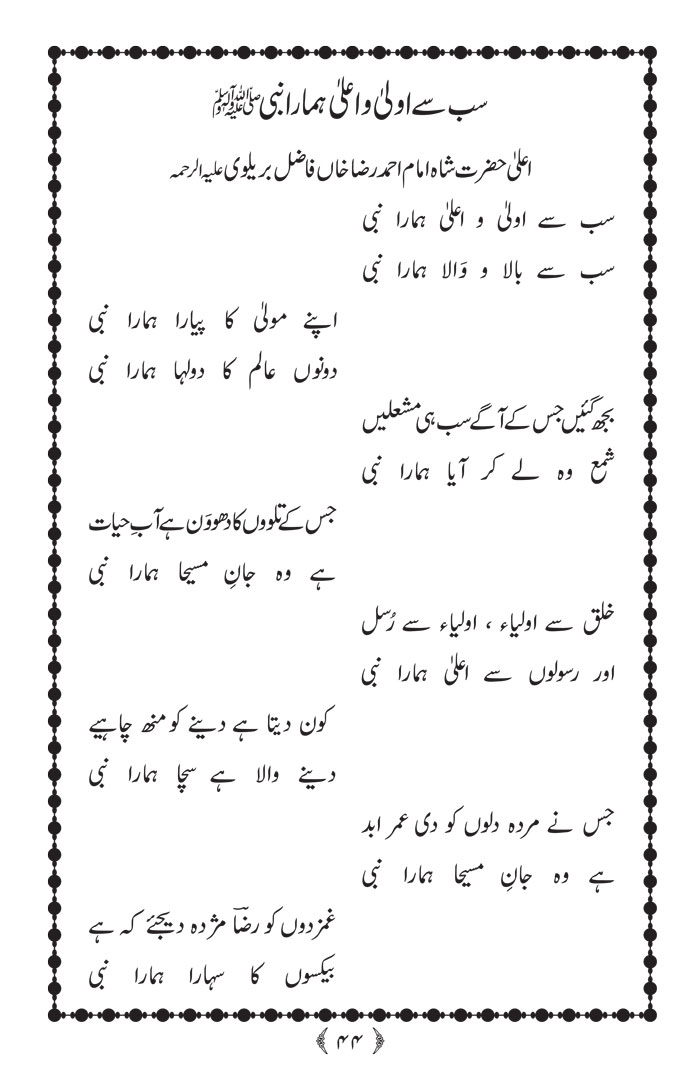 سب سے اولیٰ و اعلیٰ ہمارا نبی ﷺ
اعلیٰ حضرت شاہ امام احمد رضا خاں فاضل بریلوی علیہ الرحمہ
سب سے اولیٰ و اعلیٰ ہمارا نبی
سب سے بالا و وَالا ہمارا نبی
اپنے مولیٰ کا پیارا ہمارا نبی
دونوں عالم کا دولہا ہمارا نبی
بجھ گئیں جس کے آگے سب ہی مشعلیں
شمع وہ لے کر آیا ہمارا نبی
جس کے تلووں کا دھووَن ہے آبِ حیات
ہے وہ جانِ مسیحا ہمارا نبی
خلق سے اولیاء ، اولیاء سے رُسل
اور رسولوں سے اعلیٰ ہمارا نبی
کون دیتا ہے دینے کو منھ چاہیے
دینے والا ہے سچا ہمارا نبی
جس نے مردہ دلوں کو دی عمر ابد
ہے وہ جانِ مسیحا ہمارا نبی
غمزدوں کو رضؔا مژدہ دیجئے کہ ہے
بیکسوں کا سہارا ہمارا نبی
﴿ ۴۴ ﴾